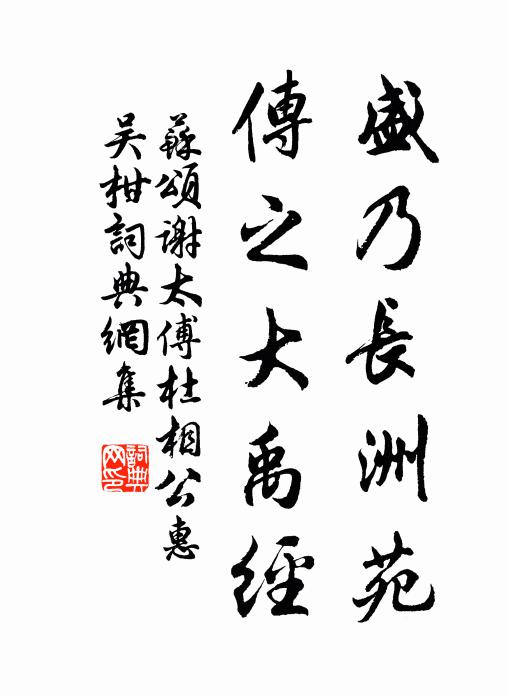 盛乃長洲苑
傳之大禹經
蘇頌謝太傅杜相公惠
吴柑詞典網集
詞典网印